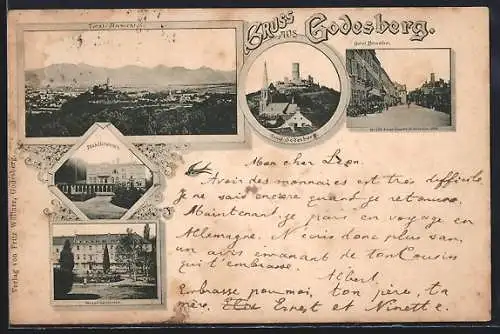 Gruss aus Godesberg.
Total-Ansicht
Hotel Blinzler.
Ruine Godesberg
Verlag von Fritz Wilffüer, Godesberg.
Mon cher Leon.
Avoir des monnaies est très difficile.
Je ne sais encore quand je retourne.
Maintenant je pars en voyage en
Allemagne. N'écris donc plus sans
un avis émanant de ton Cousin
qui t'embrasse.
Albert.
Embrasse pour moi, ton père, ta
mère, Ernest et Ninette.